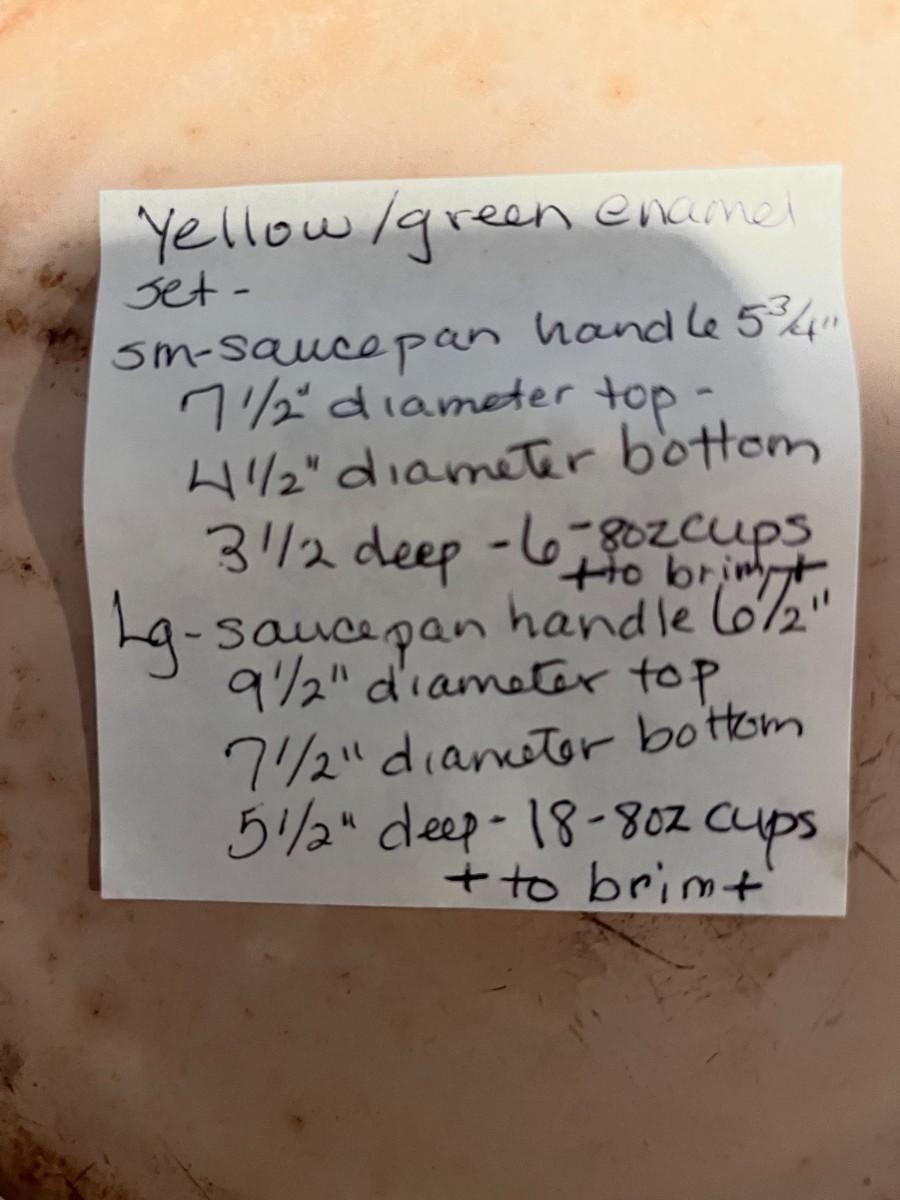 Yellow/green enamel
set-
sm-saucepan handle 5 3/4"
7 1/2" diameter top-
4 1/2" diameter bottom
3 1/2 deep - 6-8oz cups
+to brim+
Lg-saucepan handle 6 1/2"
9 1/2" diameter top
7 1/2" diameter bottom
5 1/2" deep - 18-8oz cups
+ to brim+